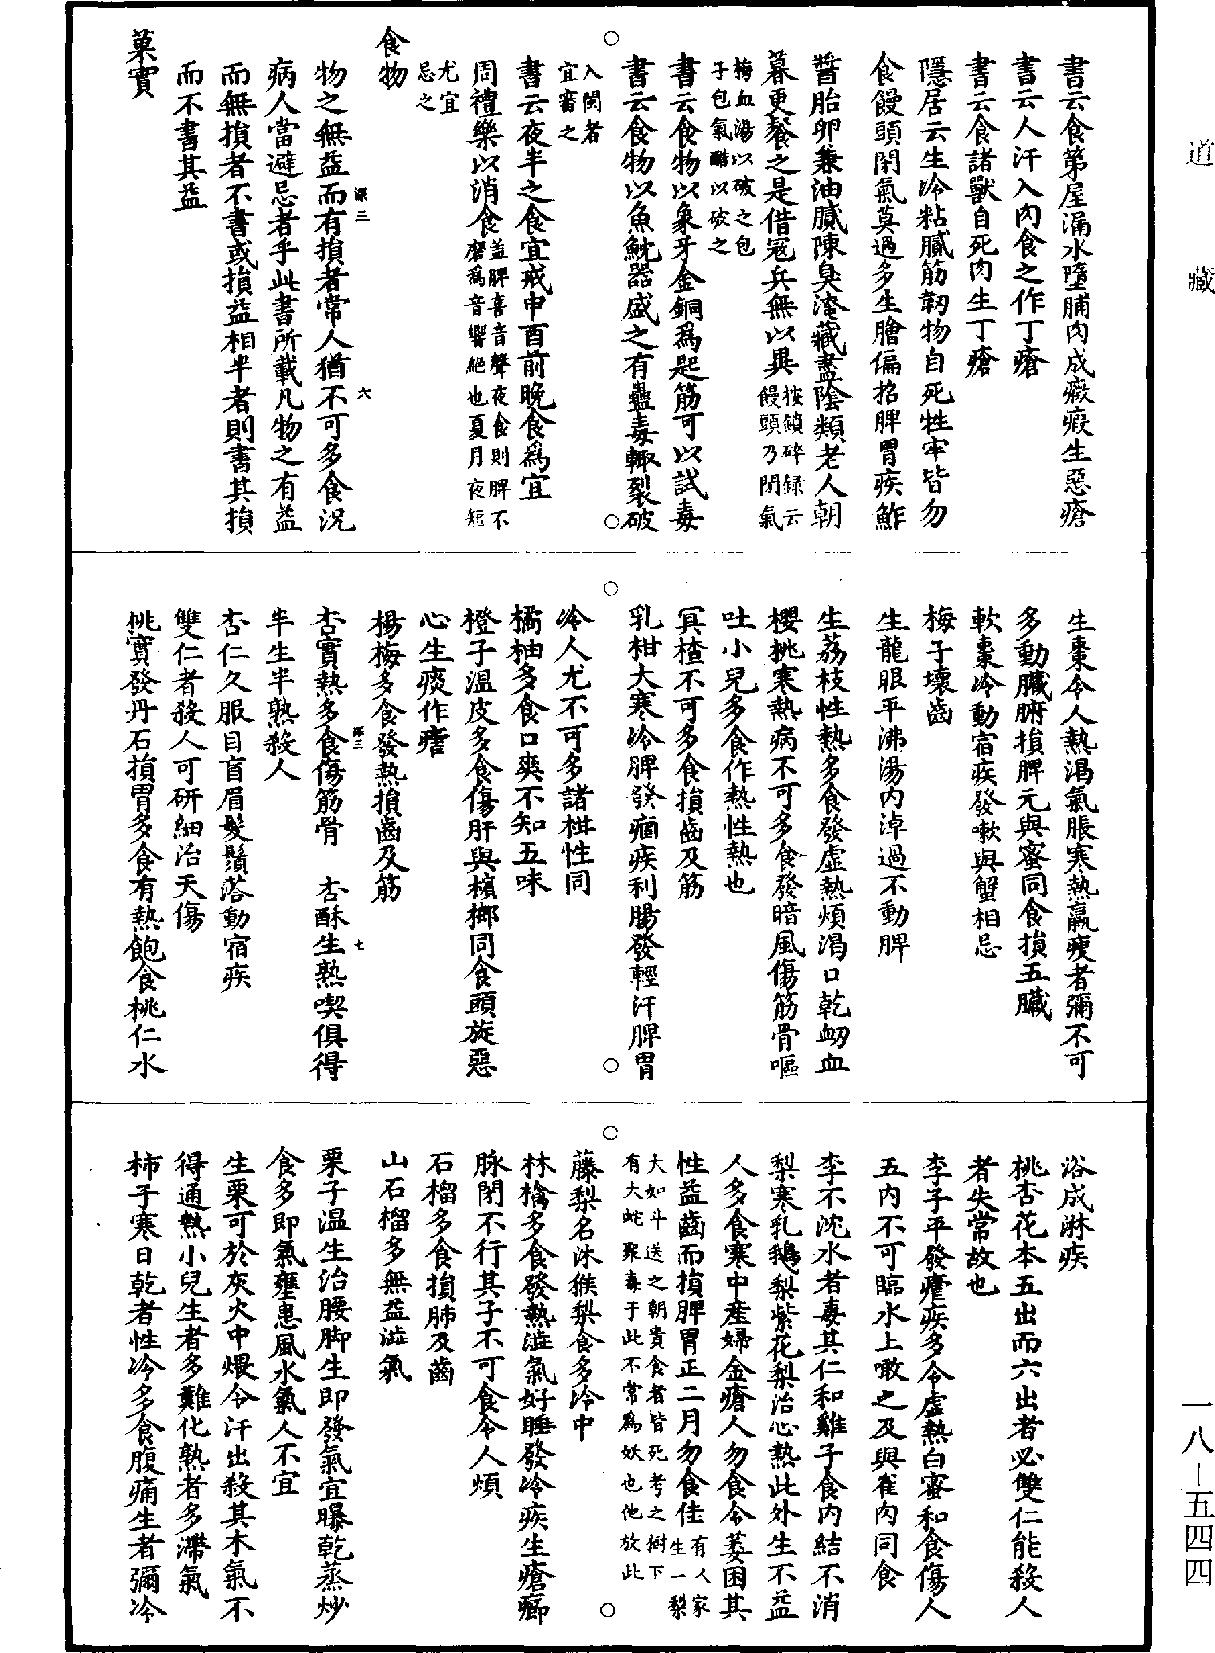 道藏
書云食第屋漏水墮脯肉成癥瘕生惡瘡
書云人汗入肉食之作丁瘡
書云食諸獸自死肉生丁瘡
隱居云生冷粘膩筋韌物自死牲牢皆勿
食饅頭閉氣莫過多生膾偏招脾胃疾鮓
醬胎卵兼油膩陳臭淹藏盡陰類老人朝
暮更餐之是借寇兵無以異按鎖碎録云饅頭乃閉氣
梅血湯以破之包子包氣醋以破之
書云食物以象牙金銅爲匙筯可以試毒
書云食物以魚魫器盛之有蠱毒輙裂破
入閩者宜審之
書云夜半之食宜戒申酉前晚食爲宜
周禮樂以消食蓋脾喜音聲夜食則脾不磨爲音響絕也夏月夜短
尤宜忌之
食物
物之無益而有損者常人猶不可多食況
深三 六
病人當避忌者乎此書所載凡物之有益
而無損者不書或損益相半者則書其損
而不書其益
菓實
生棗令人熱渴氣脹寒熱羸瘦者彌不可
多動臟腑損脾元與蜜同食損五臟
軟棗冷動宿疾發嗽與蟹相忌
梅子壞齒
生龍眼平沸湯内淖過不動脾
生荔枝性熱多食發虛熱煩渴口乾衂血
櫻桃寒熱病不可多食發暗風傷筋骨嘔
吐小兒多食作熱性熱也
冥楂不可多食損齒及筋
乳柑大寒冷脾發痼疾利腸發輕汗脾胃
冷人尤不可多諸柑性同
橘柚多食口爽不知五味
橙子溫皮多食傷肝與檳榔同食頭旋惡
心生痰作瘧
楊梅多食發熱損齒及筋
深三 七
杏實熱多食傷筋骨　杏酥生熟喫俱得
半生半熟殺人
杏仁久服目盲眉髮鬚落動宿疾
雙仁者殺人可研細治犬傷
桃實發丹石損胃多食有熱飽食桃仁水
浴成淋疾
桃杏花本五出而六出者必雙仁能殺人
者失常故也
李子平發瘧疾多令虛熱白蜜和食傷人
五内不可臨水上噉之及與雀肉同食
李不沈水者毒其仁和雞子食内結不消
梨寒乳鵝梨紫花梨治心熱此外生不益
人多食寒中產婦金瘡人勿食令萎困其
性益齒而損脾胃正二月勿食佳有人家生一梨
大如斗送之朝貴食者皆死考之樹下有大蛇聚毒于此不常爲妖也他放此
藤梨名沐猴梨食多冷中
林檎多食發熱澁氣好睡發冷疾生瘡癤
脉閉不行其子不可食令人煩
石榴多食損肺及齒
山石榴多無益澁氣
栗子溫生治腰脚生即發氣宜曝乾蒸炒
食多即氣壅患風水氣人不宜
生栗可於灰火中煨令汗出殺其木氣不
得通熱小兒生者多難化熟者多滯氣
柿子寒日乾者性冷多食腹痛生者彌冷
一八—五四四